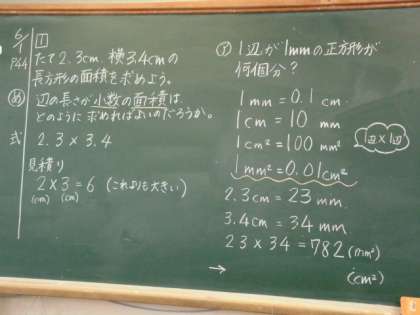 6/1
P44
1
たて2.3cm、横3.4cmの
長方形の面積を求めよう。
め 辺の長さが小数の面積は
どのように求めればよいのだろうか。
式 2.3×3.4
見積り
2×3=6 (これよりも大きい)
(cm) (cm)
1辺が1mmの正方形が
何個分?
1mm=0.1cm
1cm=10mm
1cm²=100mm²
1辺×1辺
1mm²=0.01cm²
2.3cm=23mm
3.4cm=34mm
23×34=782(mm²)
→ (cm²)